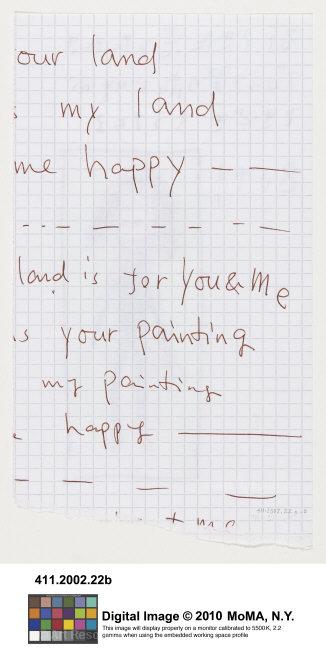 our land
my land
me happy — —
- - — — - - —
land is for you & me
is your painting
my painting
happy ———
— — — —
411.2002.22b
Digital Image © 2010 MoMA, N.Y.
This image will display properly on a monitor calibrated to 5500K, 2.2
gamma when using the embedded working space profile